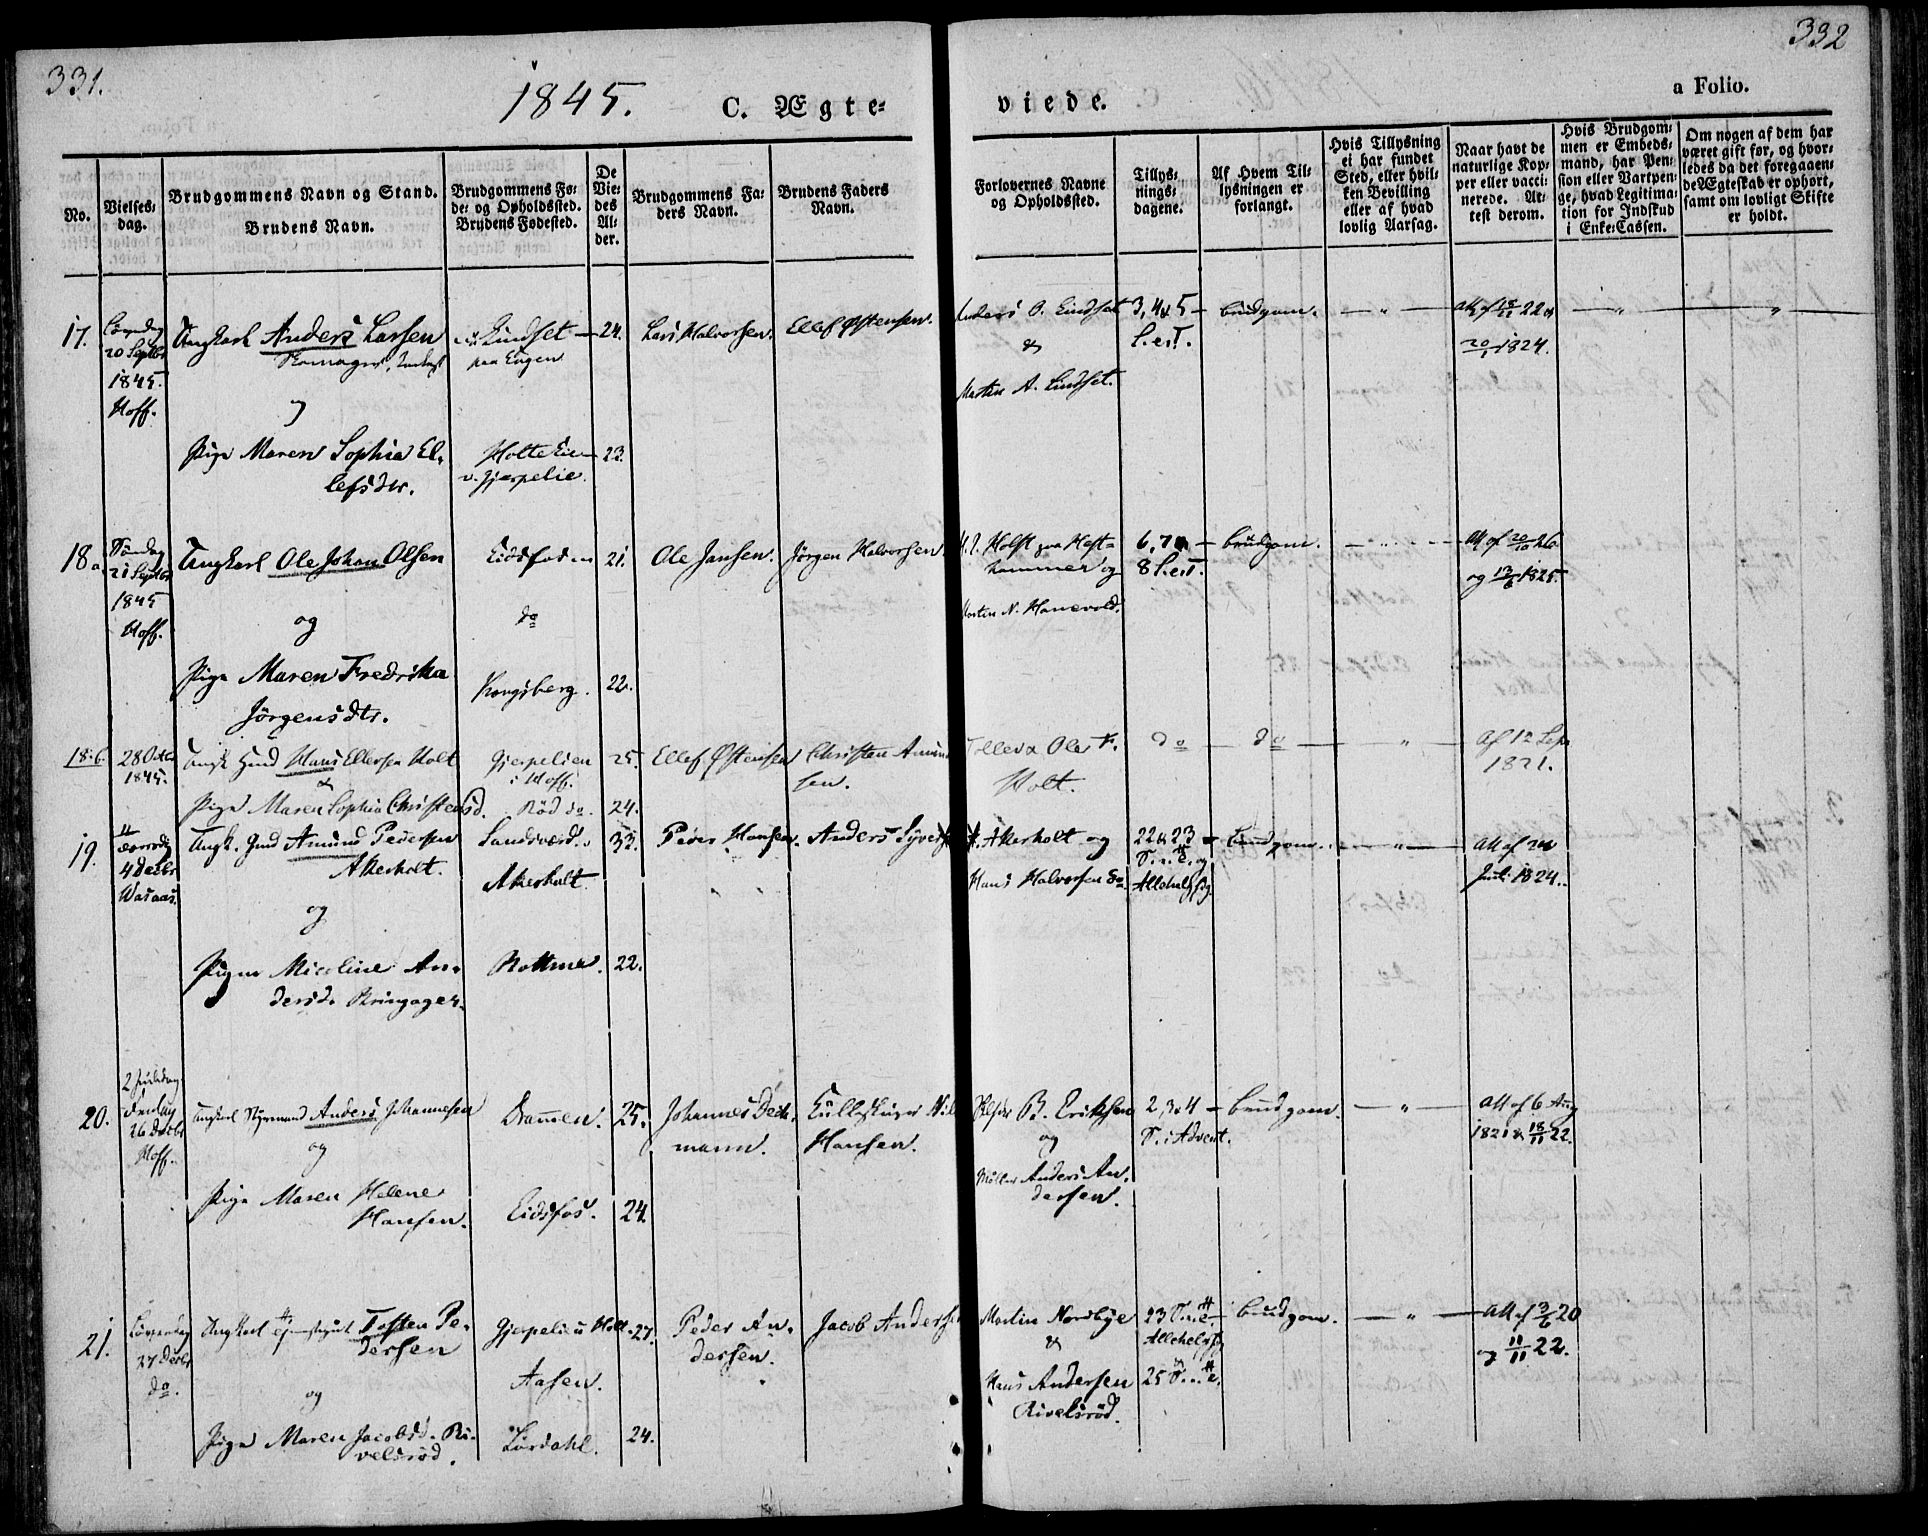 331.
332
1845.
C. Ægte-
viede.
a Folio.
No.
Vielses-
dag.
Brudgommens Navn og Stand.
Brudens Navn.
Brudgommens Fø-
de- og Opholdssted.
Brudens Fødested.
De
Vie-
des
Al-
der.
Brudgommens Fa-
ders Navn.
Brudens Faders
Navn.
Forlovernes Navne
og Opholdssted.
Tillys-
nings-
dagene.
Af Hvem Til-
lysningen er
forlangt.
Hvis Tillysning
ei har fundet
Sted, eller hvil-
ken Bevilling
eller af hvad
lovlig Aarsag.
Naar havt de
naturlige Kop-
per eller vacci-
nerede. At-
test derom.
Hvis Brudgom-
men er Embeds-
mand, har Pen-
sion eller Vartpen-
ge, hvad Legitima-
tion for Indskud
i Enke-Cassen.
Om nogen af dem har
været gift før, og hvor-
ledes da det foregaaen-
de Ægteskab er ophørt,
samt om lovligt Skifte
er holdt.
17.
20 Septbr
1845.
Hoff.
Ungkarl Anders Larsen
og
Pige Maren Sophia El-
lefsdtr.
Lindset
paa Eugen
Holte Eie
v. Gjerpelie.
24.
23.
Lars Halvorsen.
Ellef Østensen.
Anders O. Lindset
&
Martin A. Lindset.
3, 4 & 5
S. e. T.
Brudgom.
"
Att af 18/11 22 og
20/1 1824.
"
"
18 a
Søndag
21 Septbr
1845
Hoff.
Ungkarl Ole Johan Olsen
og
Pige Maren Fredrika
Jörgensdtr.
Eidsfoden
do
Kongsberg.
21.
22.
Ole Jansen.
Jörgen Halvorsen
Holst paa Hest-
hammer og
Morten N. Hanevold.
6, 7 &
8 S. e. T.
Brudgom.
"
Att af 20/10 26.
og 13/6 1825.
18 b.
28 Octbr
1845.
Ungk Gmd Hans Ellefsen Holt
&
Pige Maren Sophia Christensd.
Gjerpelien
i Hoff.
Röd do.
25.
24.
Ellef Østensen
Christen Amund
sen.
Tollev & Ole F.
Holt.
do
do
"
Af 12 Sep.
1821.
19.
4 Decbr
Vasaas.
Ungk. Gmd Amund Pedersen
Akerholt.
og
Pigen Nicoline An-
dersd. Ringager.
Sandsværd.
Akerholt.
22.
33.
Peder Hansen.
Anders Syvers
Akerholt og
Hans Halvorsen do.
22 & 23
S. e. T. og
Allehelgsd.
Brudgom.
"
Att af
Juli 1824.
20.
2 Juledag
Fredag
26 Decbr
Hoff.
Ungkarl Styrmand Anders Johannesen
og
Pige Maren Helene
Hansen.
Dramen.
Eidsfos.
25.
24.
Johannes Dech
mann.
Nils
Hansen.
B. Eriksen
og
Möller Anders An-
dersen.
2, 3 & 4
S. i Advent.
Brudgom.
"
Att af 6 Aug
1821 & 18/11 22.
21.
Löverdag
27 Decbr
do.
Ungkarl Tosten Pe-
dersen
og
Pige Maren Jacobsd. Ri-
velsröd.
Gjerpelie u Holt.
Aasen.
Lördahl.
27.
24.
Peder An-
dersen.
Jacob Andersen
Martin Nordbye
&
Hans Andersen
Rivelsröd.
23 S. e. T.
Allehelgsd
&
25 S. e. T.
Brudgom.
"
Att af 3/6 20
og 11/11 22.